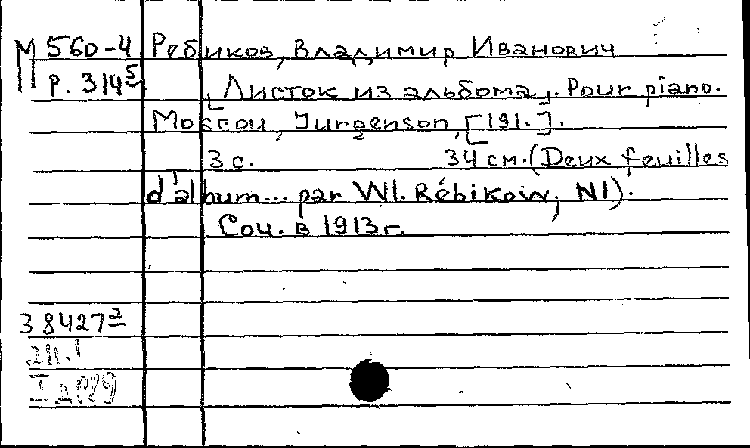 М 560-4 Ребиков, Владимир Иванович
Р. 314⁵ [Листок из альбома]. Pour piano.
Moscou, Jurgenson, [191.].
3 с. 34 см. (Deux feuilles
d'album... par Wl. Rébikow, N1).
Соч. в 1913 г.
38427²